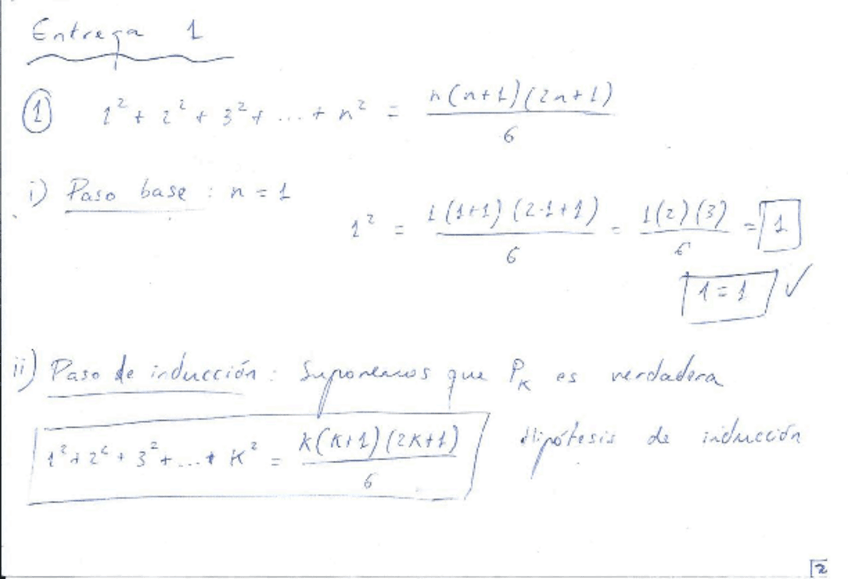 Entrega 1
① 1² + 2² + 3² + ... + n² = n(n+1)(2n+1) / 6
i) Paso base : n = 1
1² = 1(1+1)(2·1+1) / 6 = 1(2)(3) / 6 = 1
1 = 1 ✓
ii) Paso de inducción : Suponemos que Pₖ es verdadera
1² + 2² + 3² + ... + K² = K(K+1)(2K+1) / 6 Hipótesis de inducción
2